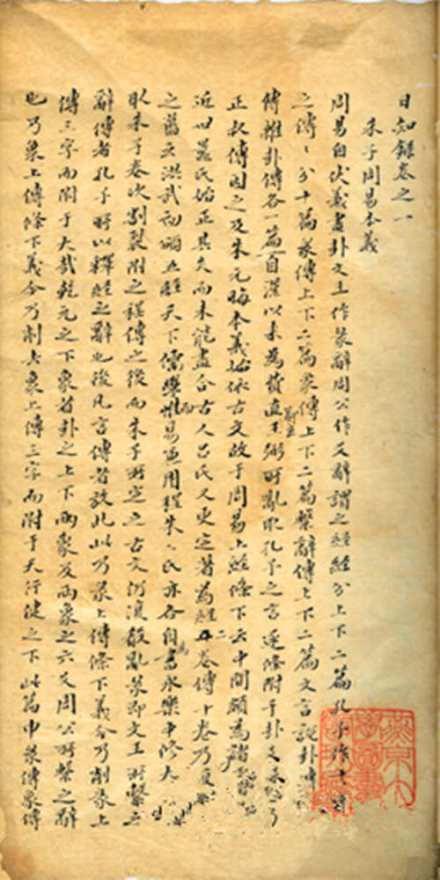 日知錄卷之一
朱子周易本義
周易自伏羲畫卦文王作彖辭周公作爻辭謂之經經分上下二篇孔子作十翼
之傳〻分十篇彖傳上下二篇象傳上下二篇繫辭傳上下二篇文言說卦傳
傳雜卦傳各一篇自漢以來為費直鄭玄王弼所亂取孔子之言逐條附于卦爻
正叔傳因之及朱元晦本義始依古文故于周易上經條下云中間頗為諸
近世晁氏始正其失而未能盡合古人呂氏又更定著為經二卷傳十卷乃復
之舊云洪武初頒五經天下儒學而易兼用程朱二氏亦各自為書永樂中修大
取朱子卷次割裂附之程傳之後而朱子所定之古文仍復殽亂彖即文王所繫之
辭傳者孔子所以釋經之辭也後凡言傳者放此此乃彖上傳條下義今乃削彖上
傳三字而附于大哉乾元之下象者卦之上下兩象及兩象之六爻周公所繫之辭
也乃象上傳條下義今乃削去象上傳三字而附于天行健之下此篇申彖傳象傳